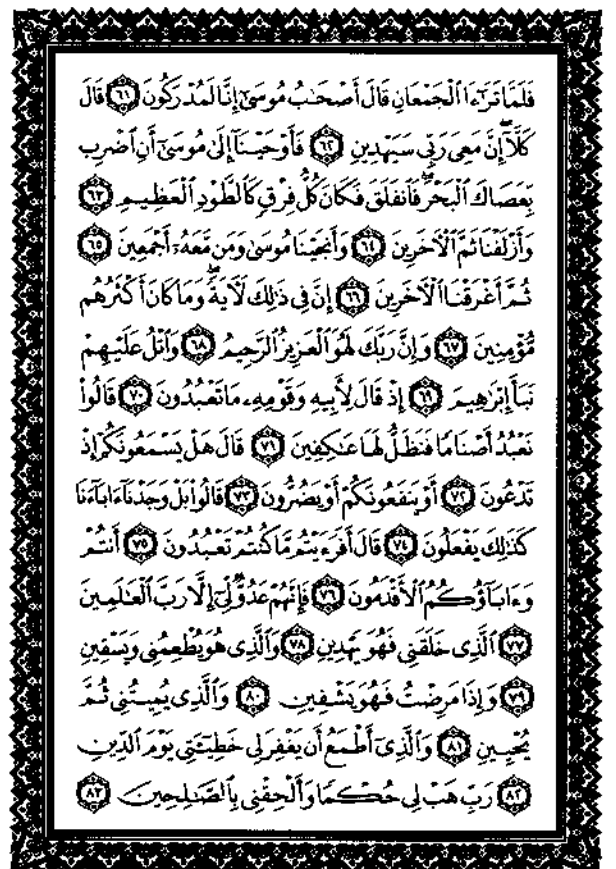 فَلَمَّا تَرَٰٓءَا ٱلْجَمْعَانِ قَالَ أَصْحَٰبُ مُوسَىٰٓ إِنَّا لَمُدْرَكُونَ ٦١ قَالَ
كَلَّآ إِنَّ مَعِىَ رَبِّى سَيَهْدِينِ ٦٢ فَأَوْحَيْنَآ إِلَىٰ مُوسَىٰٓ أَنِ ٱضْرِب
بِّعَصَاكَ ٱلْبَحْرَ ۖ فَٱنفَلَقَ فَكَانَ كُلُّ فِرْقٍ كَٱلطَّوْدِ ٱلْعَظِيمِ ٦٣
وَأَزْلَفْنَا ثَمَّ ٱلْءَاخَرِينَ ٦٤ وَأَنجَيْنَا مُوسَىٰ وَمَن مَّعَهُۥٓ أَجْمَعِينَ ٦٥
ثُمَّ أَغْرَقْنَا ٱلْءَاخَرِينَ ٦٦ إِنَّ فِى ذَٰلِكَ لَءَايَةً ۖ وَمَا كَانَ أَكْثَرُهُم
مُّؤْمِنِينَ ٦٧ وَإِنَّ رَبَّكَ لَهُوَ ٱلْعَزِيزُ ٱلرَّحِيمُ ٦٨ وَٱتْلُ عَلَيْهِمْ
نَبَأَ إِبْرَٰهِيمَ ٦٩ إِذْ قَالَ لِأَبِيهِ وَقَوْمِهِۦ مَا تَعْبُدُونَ ٧٠ قَالُوا۟
نَعْبُدُ أَصْنَامًا فَنَظَلُّ لَهَا عَٰكِفِينَ ٧١ قَالَ هَلْ يَسْمَعُونَكُمْ إِذْ
تَدْعُونَ ٧٢ أَوْ يَنفَعُونَكُمْ أَوْ يَضُرُّونَ ٧٣ قَالُوا۟ بَلْ وَجَدْنَآ ءَابَآءَنَا
كَذَٰلِكَ يَفْعَلُونَ ٧٤ قَالَ أَفَرَءَيْتُم مَّا كُنتُمْ تَعْبُدُونَ ٧٥ أَنتُمْ
وَءَابَآؤُكُمُ ٱلْأَقْدَمُونَ ٧٦ فَإِنَّهُمْ عَدُوٌّ لِّىٓ إِلَّا رَبَّ ٱلْعَٰلَمِينَ
٧٧ ٱلَّذِى خَلَقَنِى فَهُوَ يَهْدِينِ ٧٨ وَٱلَّذِى هُوَ يُطْعِمُنِى وَيَسْقِينِ
٧٩ وَإِذَا مَرِضْتُ فَهُوَ يَشْفِينِ ٨٠ وَٱلَّذِى يُمِيتُنِى ثُمَّ
يُحْيِينِ ٨١ وَٱلَّذِىٓ أَطْمَعُ أَن يَغْفِرَ لِى خَطِيٓـَٔتِى يَوْمَ ٱلدِّينِ
٨٢ رَبِّ هَبْ لِى حُكْمًا وَأَلْحِقْنِى بِٱلصَّٰلِحِينَ ٨٣